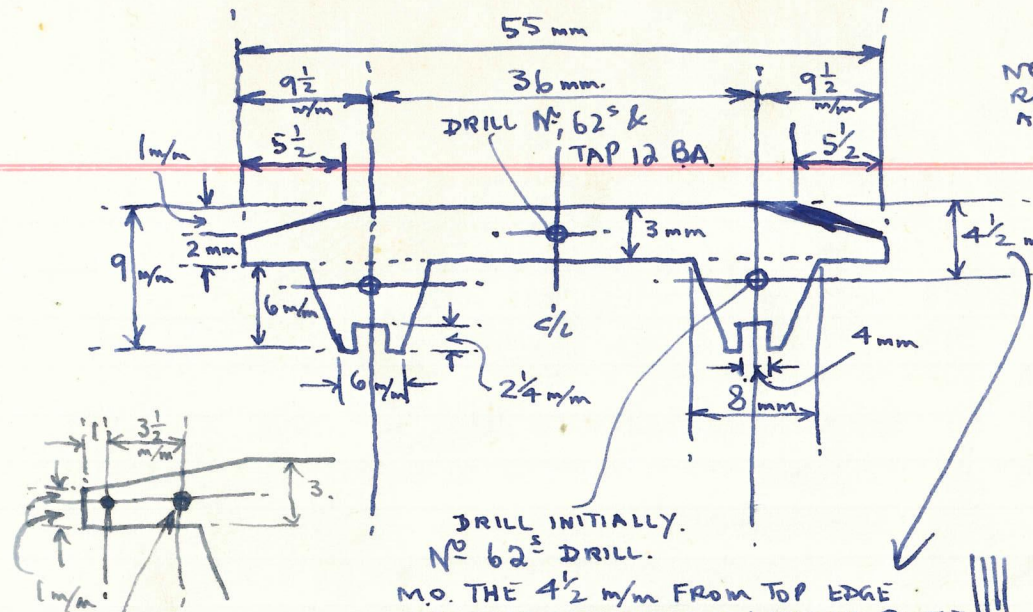 55 mm
9½ m/m
36 mm.
9½ m/m
5½
DRILL Nº 62ˢ &
TAP 12 BA.
5½
1 m/m
2 mm
9 m/m
6 m/m
3 mm
4½
C/L
6 m/m
2¼ m/m
4 mm
8 mm
1
3½ m/m
3.
1 m/m
DRILL INITIALLY.
Nº 62ˢ DRILL.
M.O. THE 4½ m/m FROM TOP EDGE